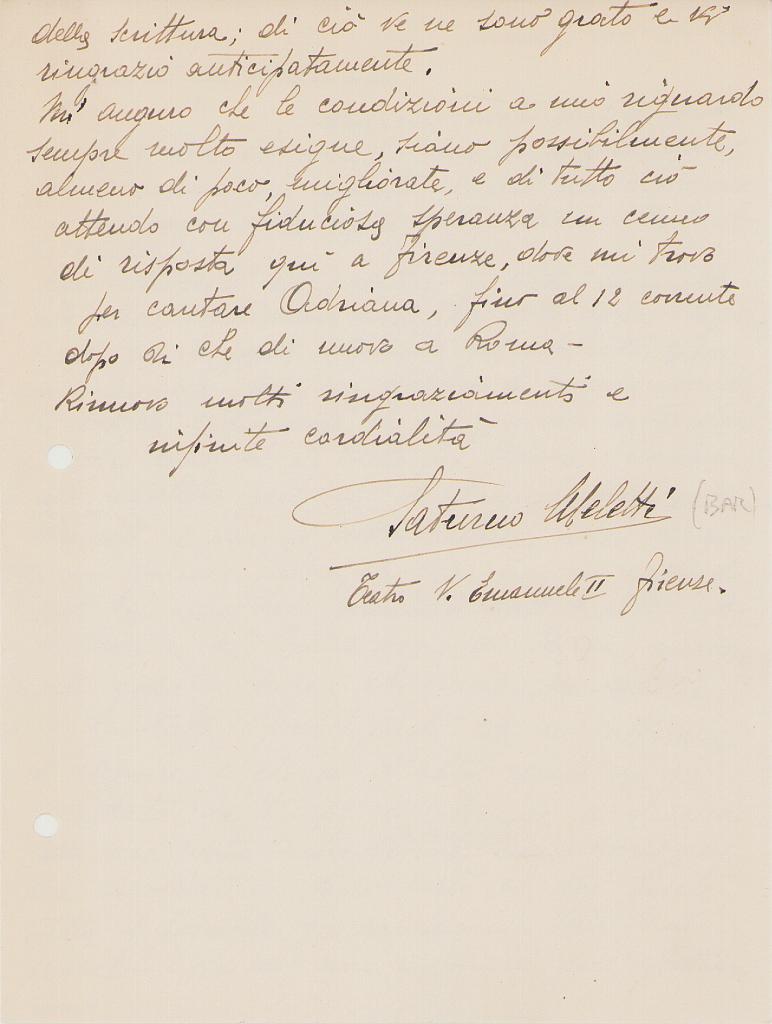 della scrittura; di ciò ve ne sono grato e vi
ringrazio anticipatamente.
Mi auguro che le condizioni a mio riguardo
sempre molto esigue, siano possibilmente,
almeno di poco, migliorate, e di tutto ciò
attendo con fiduciosa speranza un cenno
di risposta qui a Firenze, dove mi trovo
per cantare Adriana, fino al 12 corrente
dopo di che di nuovo a Roma -
Rinnovo molti ringraziamenti e
infinite cordialità
Saturno Meletti (BAR)
Teatro V. Emanuele II Firenze.